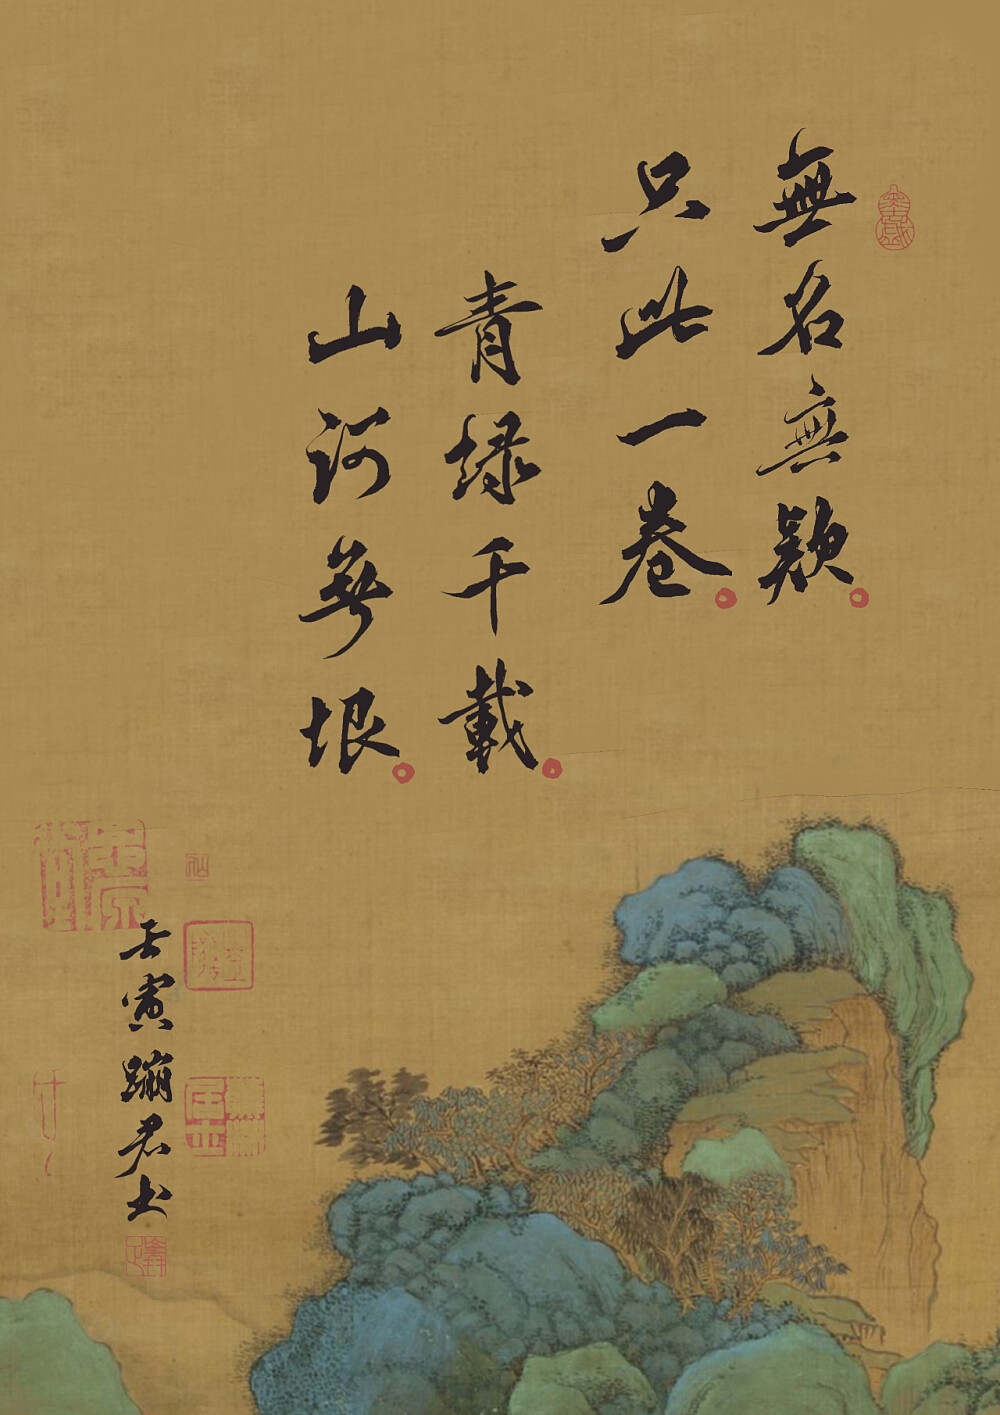 無名無款。
只此一卷。
青緑千載。
山河無垠。
壬寅蹦君书